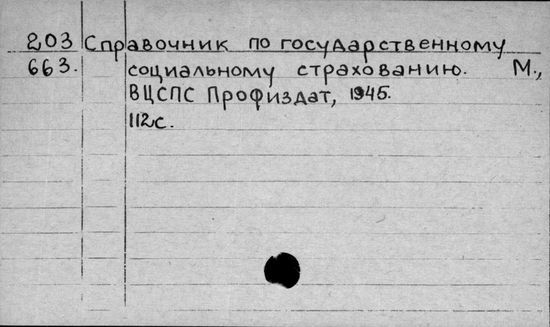 203 Справочник по государственному
663. социальному страхованию. М.,
ВЦСПС Профиздат, 1945.
112с.